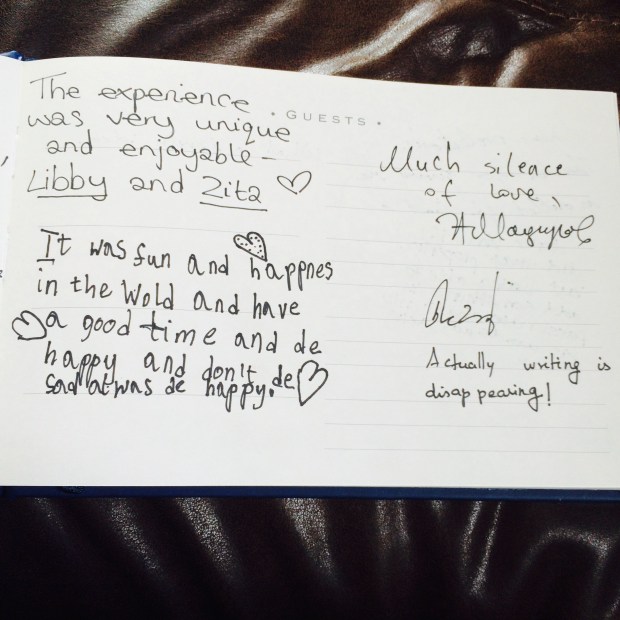 • GUESTS •
The experience
was very unique
and enjoyable –
Libby and Zita
It was fun and happnes
in the wold and have
a good time and de
happy and don't de
sad at was de happy.
Much silence
of love,
Actually writing is
disappearing!